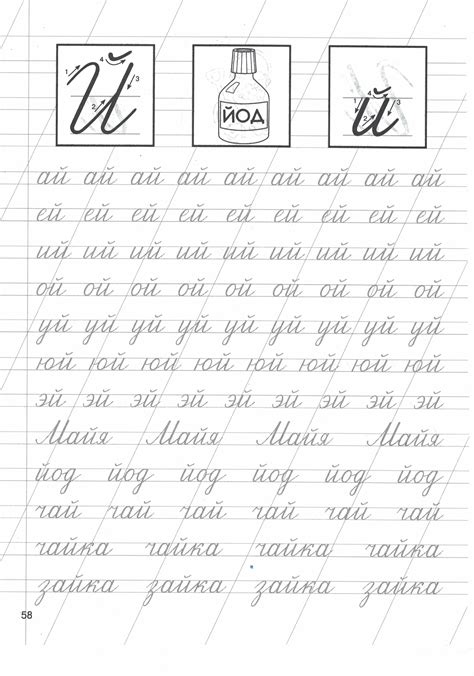 1 2 3 4 Й
ЙОД
1 2 3 4 й
ай ай ай ай ай ай ай ай ай
ей ей ей ей ей ей ей ей ей
ий ий ий ий ий ий ий ий ий
ой ой ой ой ой ой ой ой ой
уй уй уй уй уй уй уй уй уй
юй юй юй юй юй юй юй юй
эй эй эй эй эй эй эй эй эй
Майя Майя Майя Майя
йод йод йод йод йод йод
чай чай чай чай чай чай
чайка чайка чайка чайка
зайка зайка зайка зайка
58